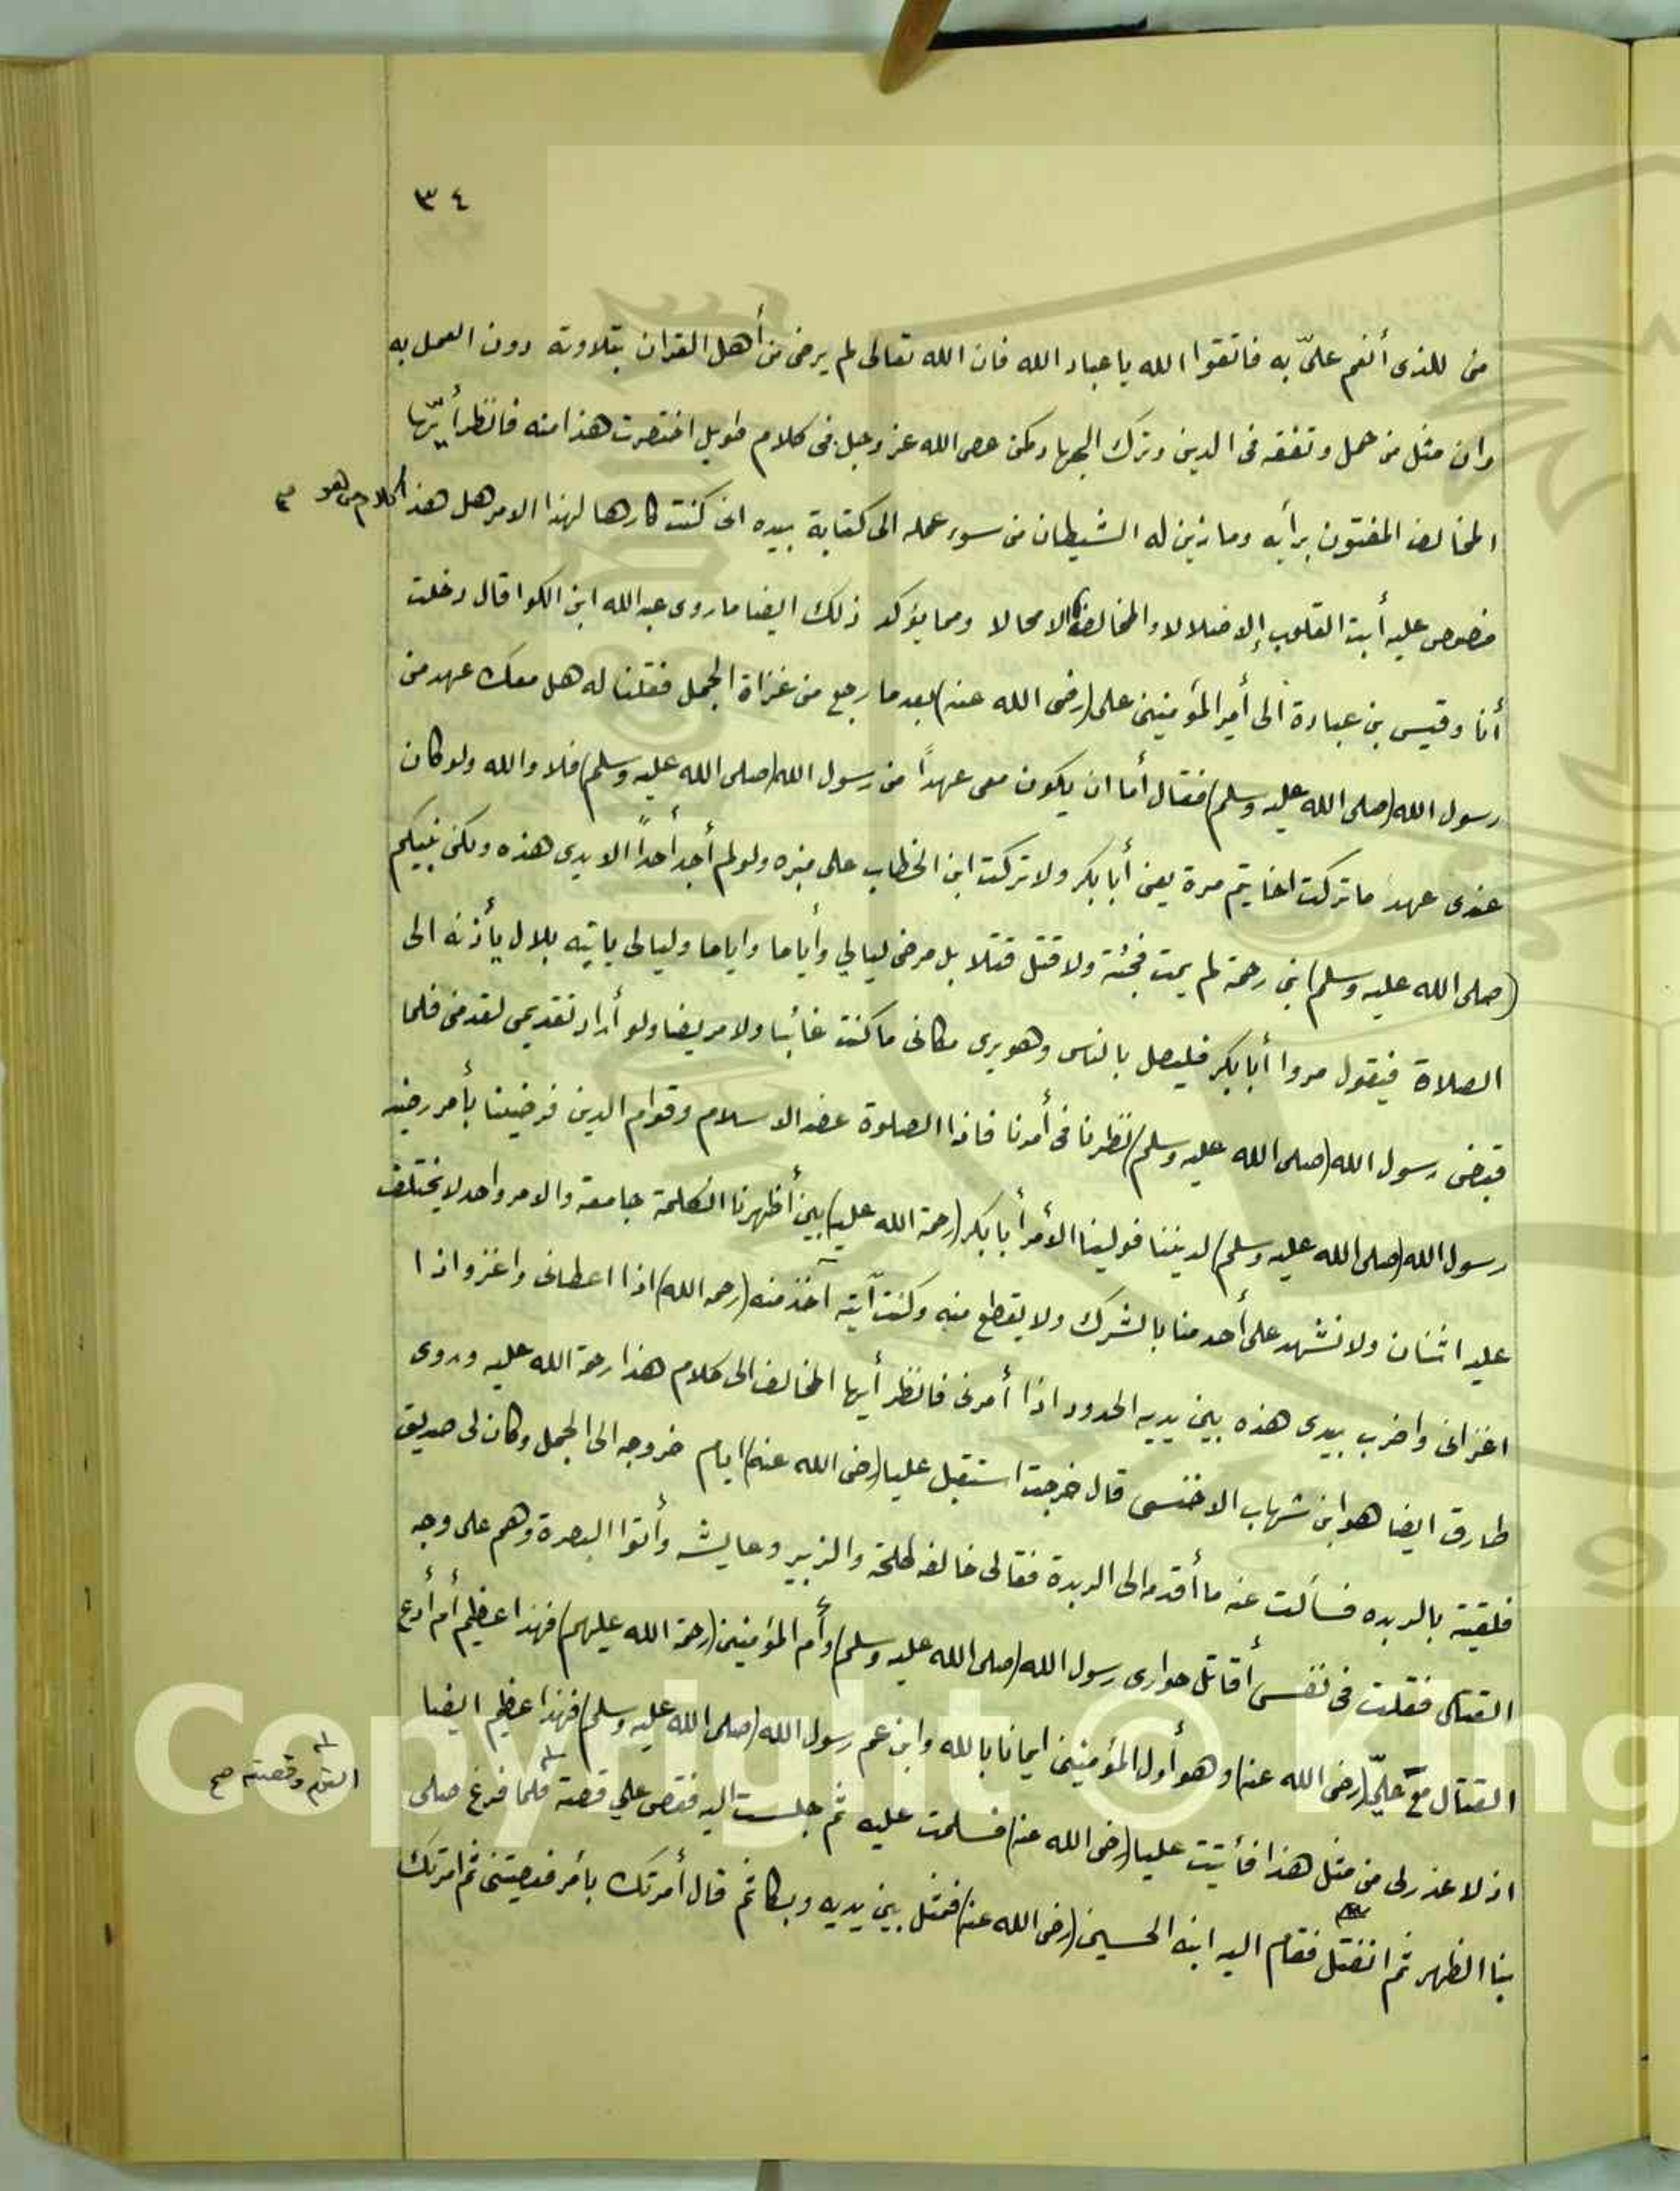 ٣٤
من للذى أنعم علىّ به فاتقوا الله يا عباد الله فان الله تعالى لم يرضى من أهل القران بتلاوته دون العمل به
وان مثل من حمل وتفقه فى الدين وترك الجهاد كمن عصى الله عز وجل فى كلام طويل اختصرت هذا منه فانظر أيّها
المخالف المفتون برأيه وما زين له الشيطان من سوء عمله الى كتابة بيده انى كنت كارها لهذا الامر هل هذا كلام من هو
منصوص عليه أبت القلوب إلا ضلالا والمخالفة الا محالا ومما يؤكد ذلك ايضا ما روى عبد الله ابن الكوا قال دخلت
أنا وقيس بن عبادة الى أمير المؤمنين على (رضى الله عنه) بعد ما رجع من غزاة الجمل فقلنا له هل معك عهد من
رسول الله (صلى الله عليه وسلم) فقال أما ان يكون معى عهداً من رسول الله (صلى الله عليه وسلم) فلا والله ولو كان
عندى عهد ما تركت اخا تيم مرة يعنى أبا بكر ولا تركت ابن الخطاب على منبره ولو لم أجد أحداً الا يدى هذه ولكن نبيكم
(صلى الله عليه وسلم) نبى رحمة لم يمت فجئة ولا قتل قتلا بل مرض ليالي وأياما واياما وليالى ياتيه بلال يأذنه الى
الصلاة فيقول مروا أبا بكر فليصل بالناس وهو يرى مكانى ما كنت غائبا ولا مريضا ولو أراد تقديمى لقدمنى فلما
قبض رسول الله (صلى الله عليه وسلم) نظرنا فى أمرنا فاذا الصلوة عضد الاسلام وقوام الدين فرضينا بأمر رضيه
رسول الله (صلى الله عليه وسلم) لديننا فولينا الأمر أبا بكر (رحمة الله عليه) بين أظهرنا الكلمة جامعة والامر واحد لا يختلف
عليه اثنان ولا نشهد على أحد منا بالشرك ولا يقطع منه وكنت آتيه آخذ منه (رحمه الله) اذا اعطانى واغزو اذا
اغزانى واضرب بيدى هذه بين يديه الحدود اذا أمرنى فانظر أيها المخالف الى كلام هذا رحمة الله عليه وروى
طارق ايضا هو ابن شهاب الاخنسى قال خرجت استقبل عليا (رضى الله عنه) ايام خروجه الى الجمل وكان لى صديق
فلقيته بالربده فسألت عنه ما أقدمه الى الربدة فقالى خالفه طلحة والزبير وعايشه وأتوا البصرة وهم على وجه
القتالى فقلت فى نفسى أقاتل حوارى رسول الله (صلى الله عليه وسلم) وأم المؤمنين (رحمة الله عليهم) فهذا عظيم أم أدع
القتال مع عليّ (رضى الله عنه) وهو أول المؤمنين ايمانا بالله وابن عم رسول الله (صلى الله عليه وسلم) فهذا عظيم ايضا
اذ لا عذر لى من مثل هذا فأتيت عليا (رضى الله عنه) فسلمت عليه ثم جلست اليه فقص علي قصة فلما فرغ صلى
القوم وقصته صح
بنا الظهر ثم انفتل فقام اليه ابنه الحسين (رضى الله عنه) فمثل بين يديه وبكا ثم قال أمرتك بأمر فعصيتنى ثم امرتك